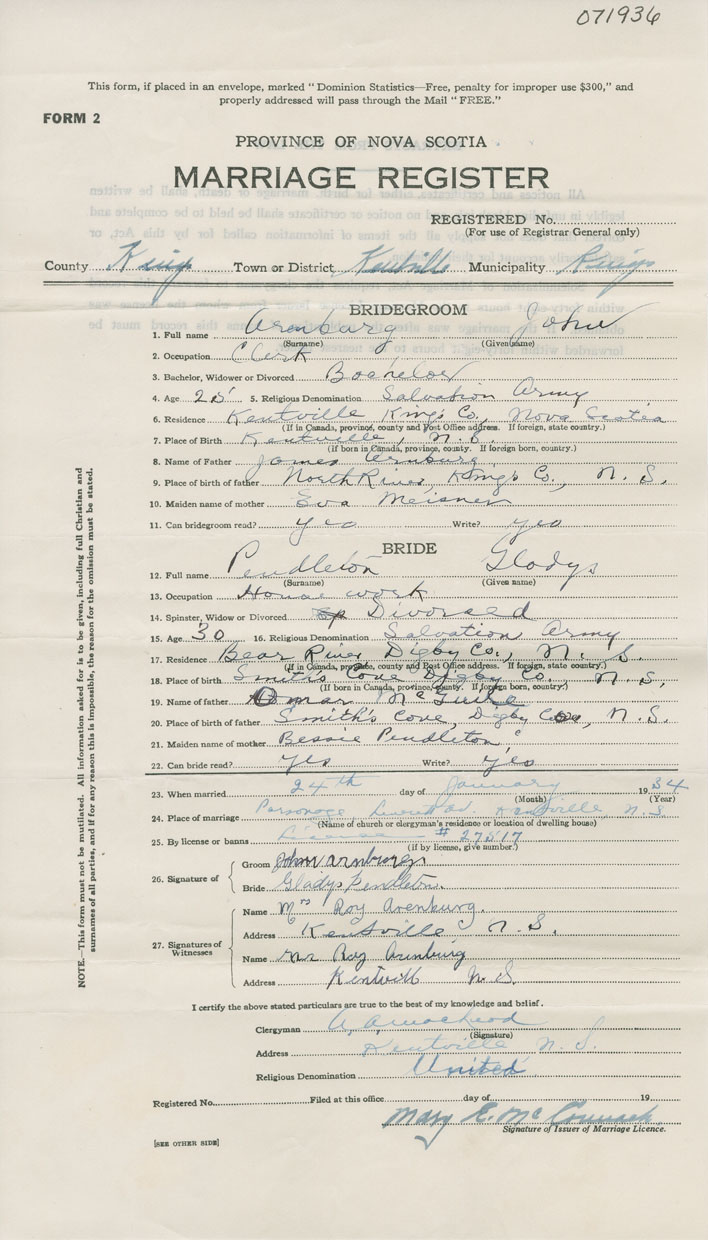 071936
This form, if placed in an envelope, marked "Dominion Statistics—Free, penalty for improper use $300," and
properly addressed will pass through the Mail "FREE."
FORM 2
PROVINCE OF NOVA SCOTIA
MARRIAGE REGISTER
REGISTERED No.
(For use of Registrar General only)
County Kings Town or District Kentville Municipality Kings
BRIDEGROOM
1. Full name Arenburg John
(Surname) (Given name)
2. Occupation Clerk
3. Bachelor, Widower or Divorced Bachelor
4. Age 25 5. Religious Denomination Salvation Army
6. Residence Kentville Kings Co., Nova Scotia
(If in Canada, province, county and Post Office address. If foreign, state country.)
7. Place of Birth Kentville, N. S.
(If born in Canada, province, county. If foreign born, country.)
8. Name of Father James Arnburg
9. Place of birth of father North River, Kings Co., N. S.
10. Maiden name of mother Eva Meisner
11. Can bridegroom read? yes Write? yes
BRIDE
12. Full name Pendleton Gladys
(Surname) (Given name)
13. Occupation House work
14. Spinster, Widow or Divorced Sp Divorced
15. Age 30 16. Religious Denomination Salvation Army
17. Residence Bear River Digby Co., N. S.
(If in Canada, province, county and Post Office address. If foreign, state country.)
18. Place of birth Smith's Cove Digby Co., N. S,
(If born in Canada, province, county. If foreign born, country.)
19. Name of father Omar McGuire
20. Place of birth of father Smith's Cove, Digby Co, N. S.
21. Maiden name of mother Bessie Pendleton,
22. Can bride read? yes Write? yes
23. When married 24th day of January 1934
(Month) (Year)
24. Place of marriage Parsonage Kentville, N. S
(Name of church or clergyman's residence or location of dwelling house)
25. By license or banns License # 27517
(if by license, give number.)
26. Signature of
Groom John Arnburg
Bride Gladys Pendleton.
27. Signatures of Witnesses
Name Mrs Roy Arenburg.
Address Kentville N. S.
Name Mr Roy Arinburg
Address Kentvill N. S.
I certify the above stated particulars are true to the best of my knowledge and belief.
Clergyman
(Signature)
Address Kentville N. S.
Religious Denomination United
Registered No. Filed at this office day of 19
Mary E. McCormack
Signature of Issuer of Marriage Licence.
[SEE OTHER SIDE]
NOTE.—This form must not be mutilated. All information asked for is to be given, including full Christian and
surnames of all parties, and if for any reason this is impossible, the reason for the omission must be stated.